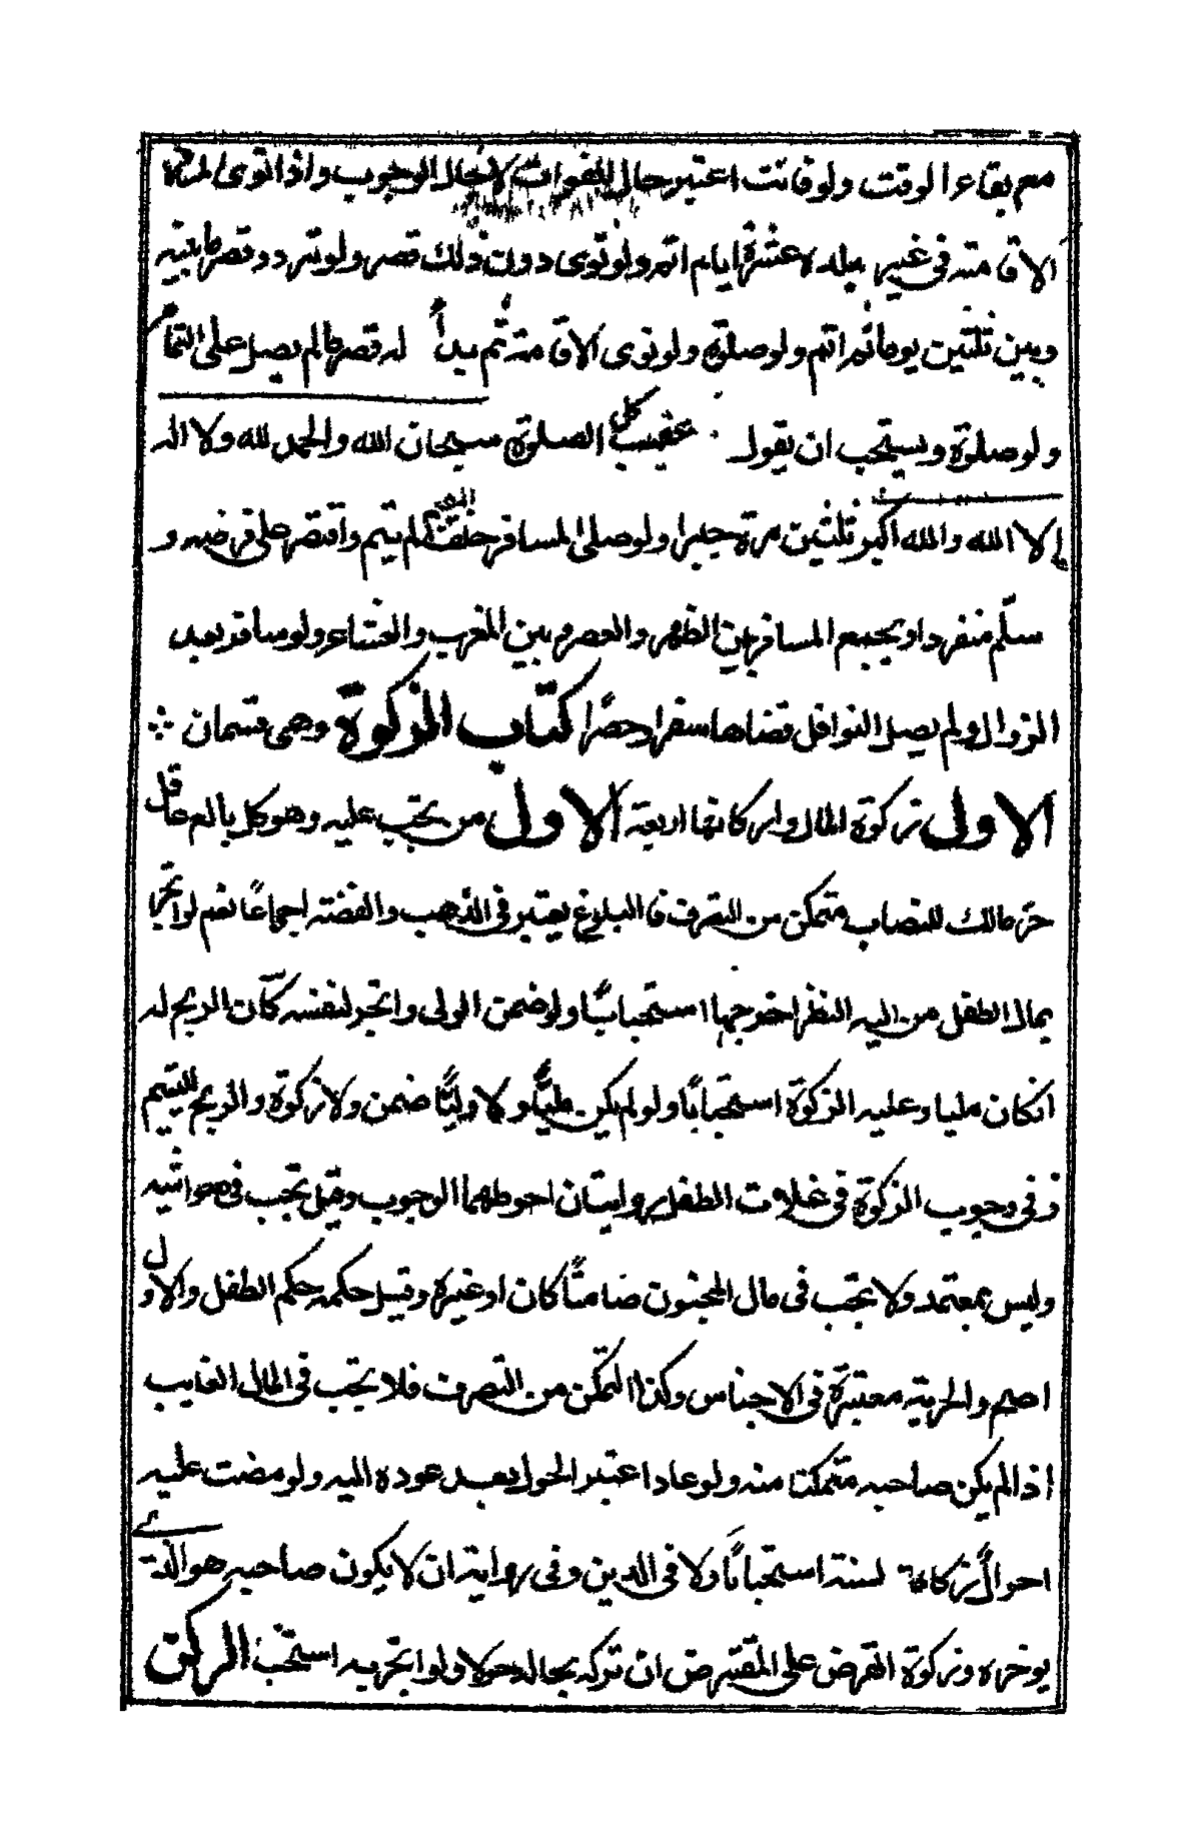 مع بقاء الوقت ولو فاتت اعتبر حال الفوات لا حال الوجوب واذا نوى
الاقامة في غير بلده عشرة ايام اتم ولو نوى دون ذلك قصر ولو تردد قصر ما بينه
وبين ثلثين يوما ثم اتم ولو صلوة ولو نوى الاقامة ثم بدأ له قصر ما لم يصل على التمام
ولو صلوة ويستحب ان يقول عقيب كل الصلوة سبحان الله والحمد لله ولا اله
الا الله والله اكبر ثلثين مرة جبرا ولو صلى المسافر خلف المقيم لم يتم واقتصر على فرضه و
سلّم منفردا ويجمع المسافر بين الظهر والعصر وبين المغرب والعشاء ولو سافر بعد
الزوال ولم يصل النوافل قضاها سفرا وحضرا كتاب الزكوة وهي قسمان
الاول زكوة المال واركانها اربعة الاول من يجب عليه وهو كل بالغ عاقل
حرّ مالك للنصاب متمكن من التصرف فا البلوغ يعتبر في الذهب والفضة اجماعًا نعم لو اتجر
بمال الطفل من اليه النظر اخرجها استحبابًا ولو ضمن الولى واتجر لنفسه كان الربح له
انكان مليا وعليه الزكوة استحبابًا ولو لم يكن مليًّا ولا وليًّا ضمن ولا زكوة والربح لليتيم
وفى وجوب الزكوة فى غلات الطفل روايتان احوطهما الوجوب وقيل تجب فى مواشيه
وليس بمعتمد ولا تجب فى مال المجنون ضامتًا كان او غيره وقيل حكمه حكم الطفل والاول
اصح والحرية معتبرة فى الاجناس وكذا التمكن من التصرف فلا يجب فى المال الغايب
اذا لم يكن صاحبه متمكنا منه ولو عاد اعتبر الحول بعد عوده اليه ولو مضت عليه
احوالٌ زكاه لسنة استحبابًا ولا فى الدين وفى رواية ان لا يكون صاحبه هو الذى
يوخره وزكوة القرض على المقترض ان تركه بحاله حولا ولو اتجر به استحبّ الركن